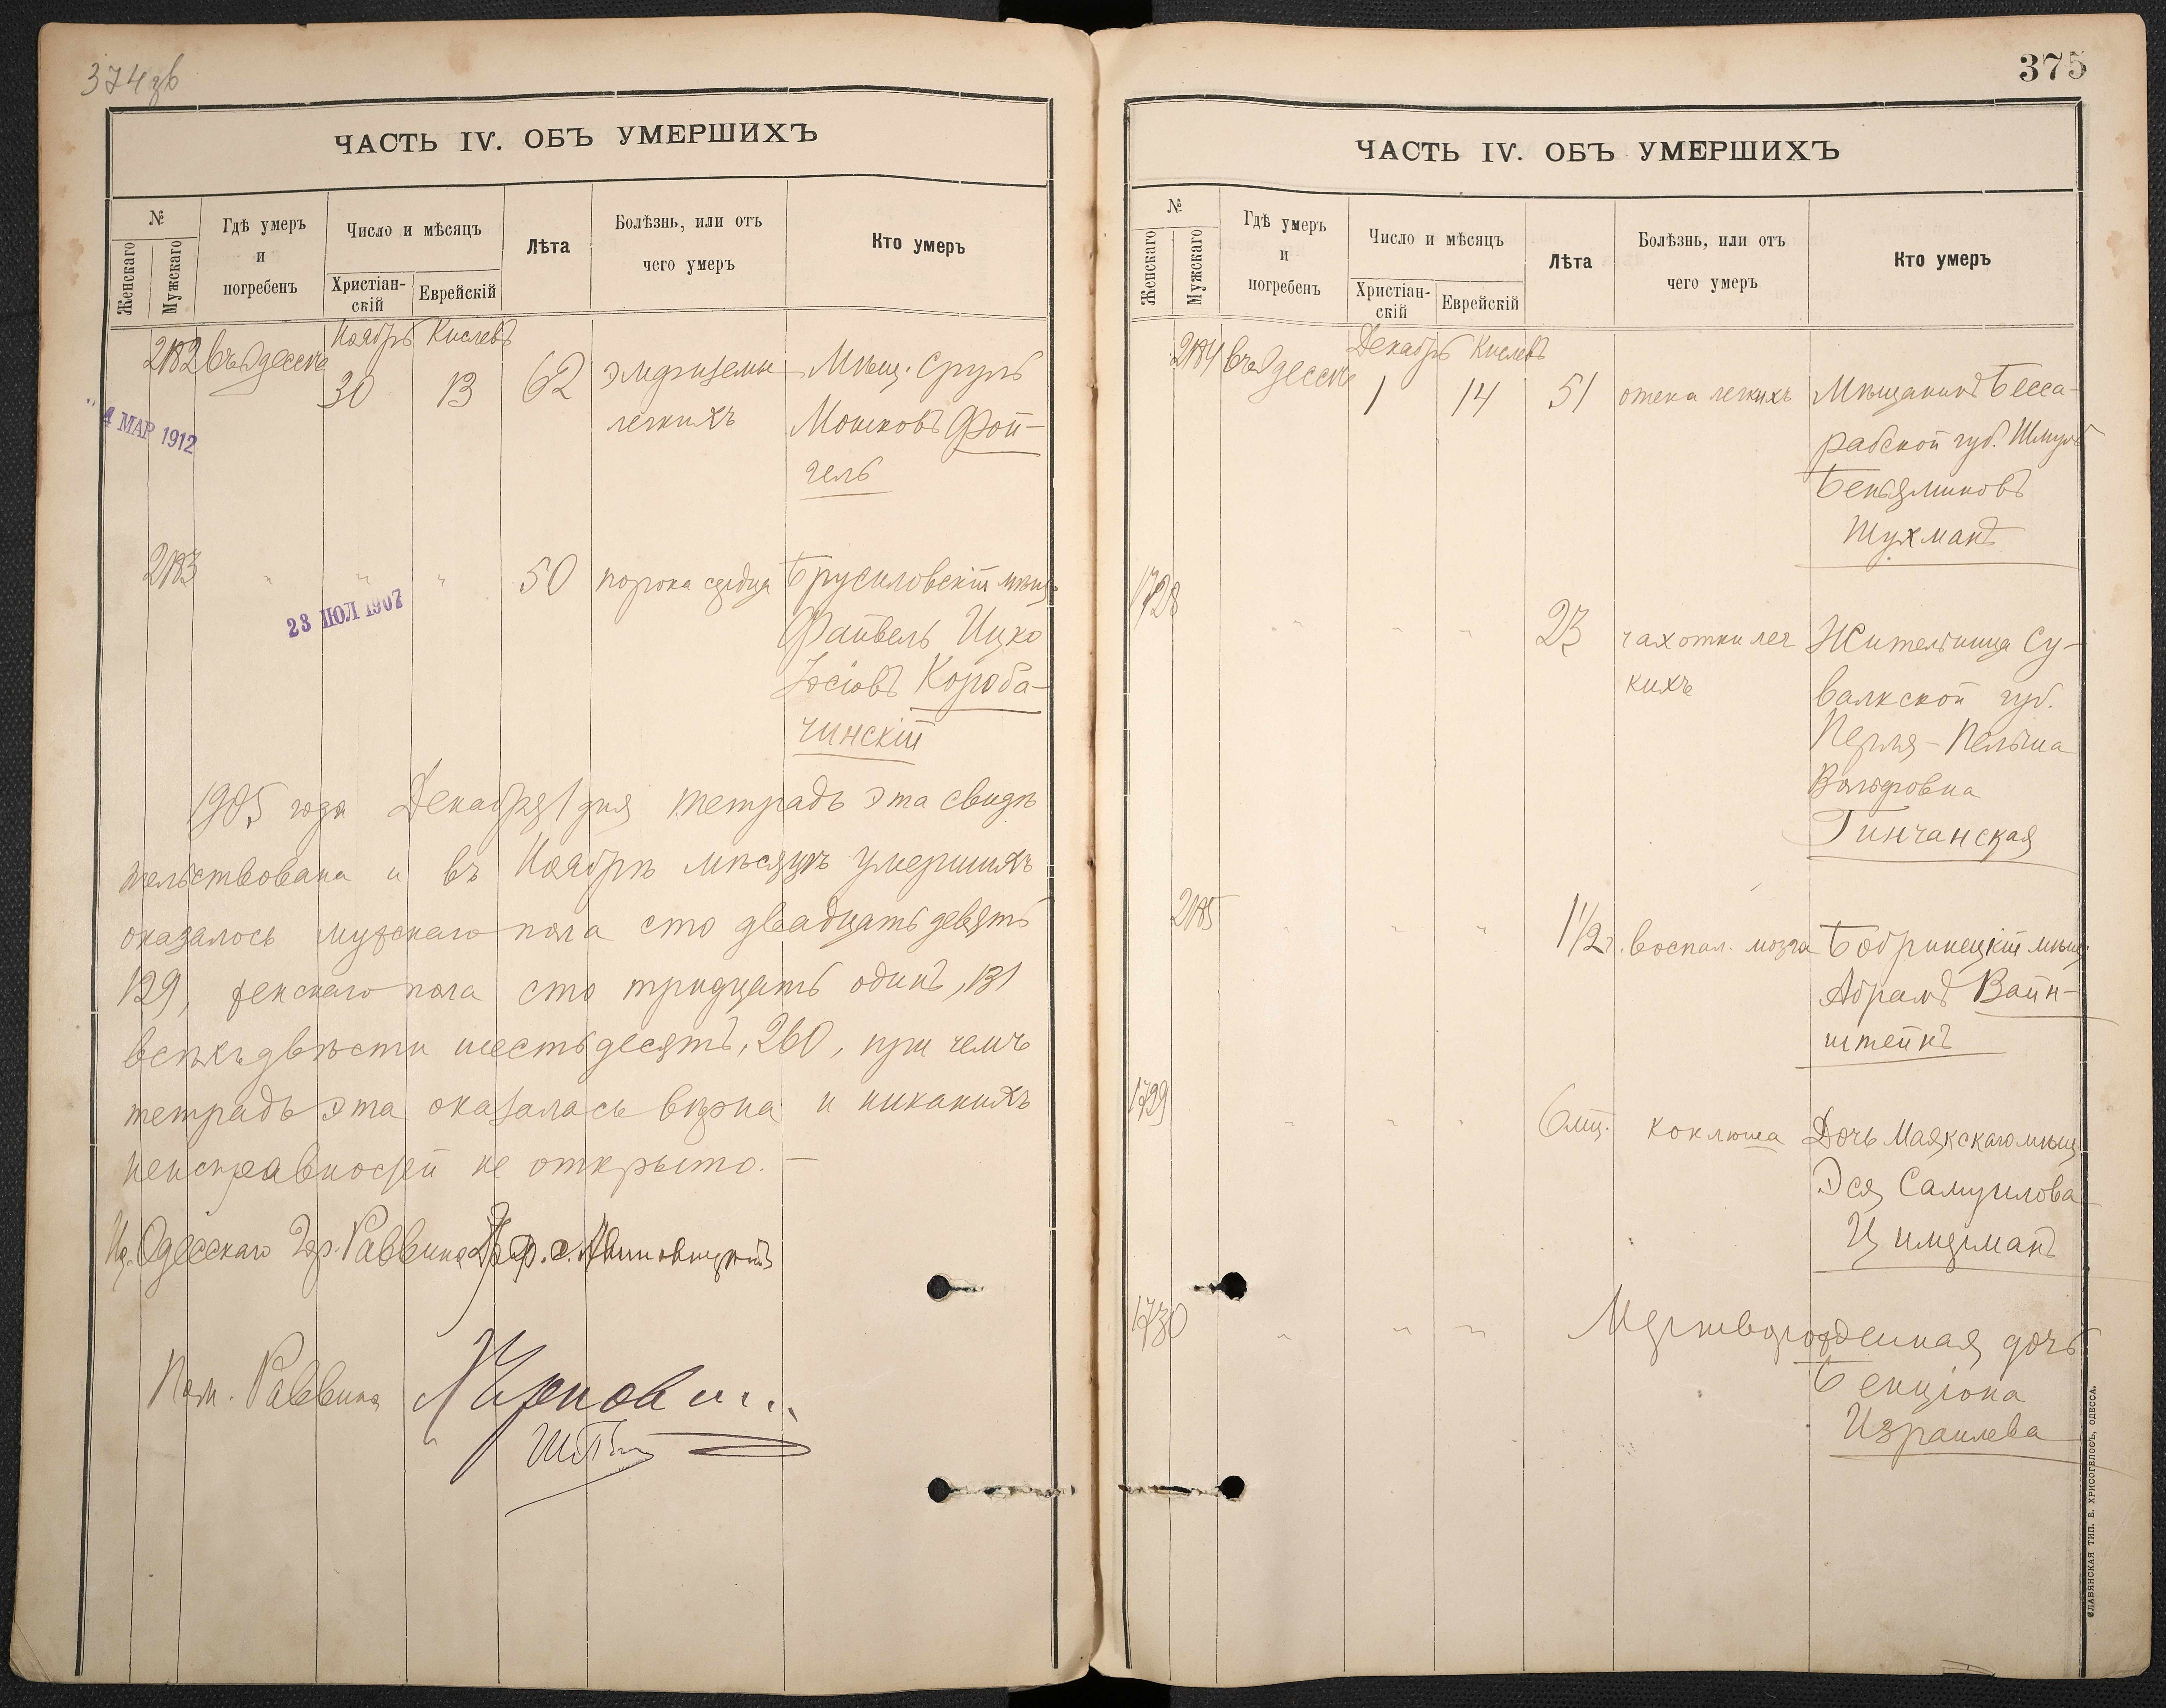 374 зв
ЧАСТЬ IV. ОБЪ УМЕРШИХЪ
№
Женскаго
Мужскаго
Гдѣ умеръ
и
погребенъ
Число и мѣсяцъ
Христіан-
скій
Еврейскій
Лѣта
Болѣзнь, или отъ
чего умеръ
Кто умеръ
Ноябрь Кислевъ
2182 въ Одессѣ 30 13 62 эмфиземы Мѣщ. Сруль
легкихъ Мошковъ Фой-
гель
4 МАР 1912
2183 " " " 50 порока сердца Брусиловскій мѣщ.
23 ІЮЛ 1907
Файвель Ицко
Іосіовъ Короба-
чинскій
1905 года Декабря 1 дня тетрадь эта свидѣ
тельствована и въ Ноябрѣ мѣсяцѣ умершихъ
оказалось мужскаго пола сто двадцать девять
129, женскаго пола сто тридцать одинъ, 131
всѣхъ двѣсти шестьдесятъ, 260, при чемъ
тетрадь эта оказалась вѣрна и никакихъ
неисправностей не открыто. —
Одесскаго Гор. Раввина
Пом. Раввина
375
ЧАСТЬ IV. ОБЪ УМЕРШИХЪ
№
Женскаго
Мужскаго
Гдѣ умеръ
и
погребенъ
Число и мѣсяцъ
Христіан-
скій
Еврейскій
Лѣта
Болѣзнь, или отъ
чего умеръ
Кто умеръ
Декабрь Кислевъ
2184 въ Одессѣ 1 14 51 отека легкихъ Мѣщанинъ Бесса-
рабской губ. Шмуль
Беньяминовъ
Шухманъ
1728 " " " 23 чахотки лег Жительница Су-
кихъ валкской губ.
Перля-Пельша
Вольфовна
Гинчанская
2185 " " " 1 1/2 г. воспал. мозга Бобринецкій мѣщ.
Абрамъ Вайн-
штейнъ
1729 " " " 6 мц. коклюша Дочь Маякскаго мѣщ.
Эся Самуилова
Цимерманъ
1730 " " " Мертворожденная дочь
Бенціона
Израилева
СЛАВЯНСКАЯ ТИП. Е. ХРИСОГЕЛОСЪ, ОДЕССА.